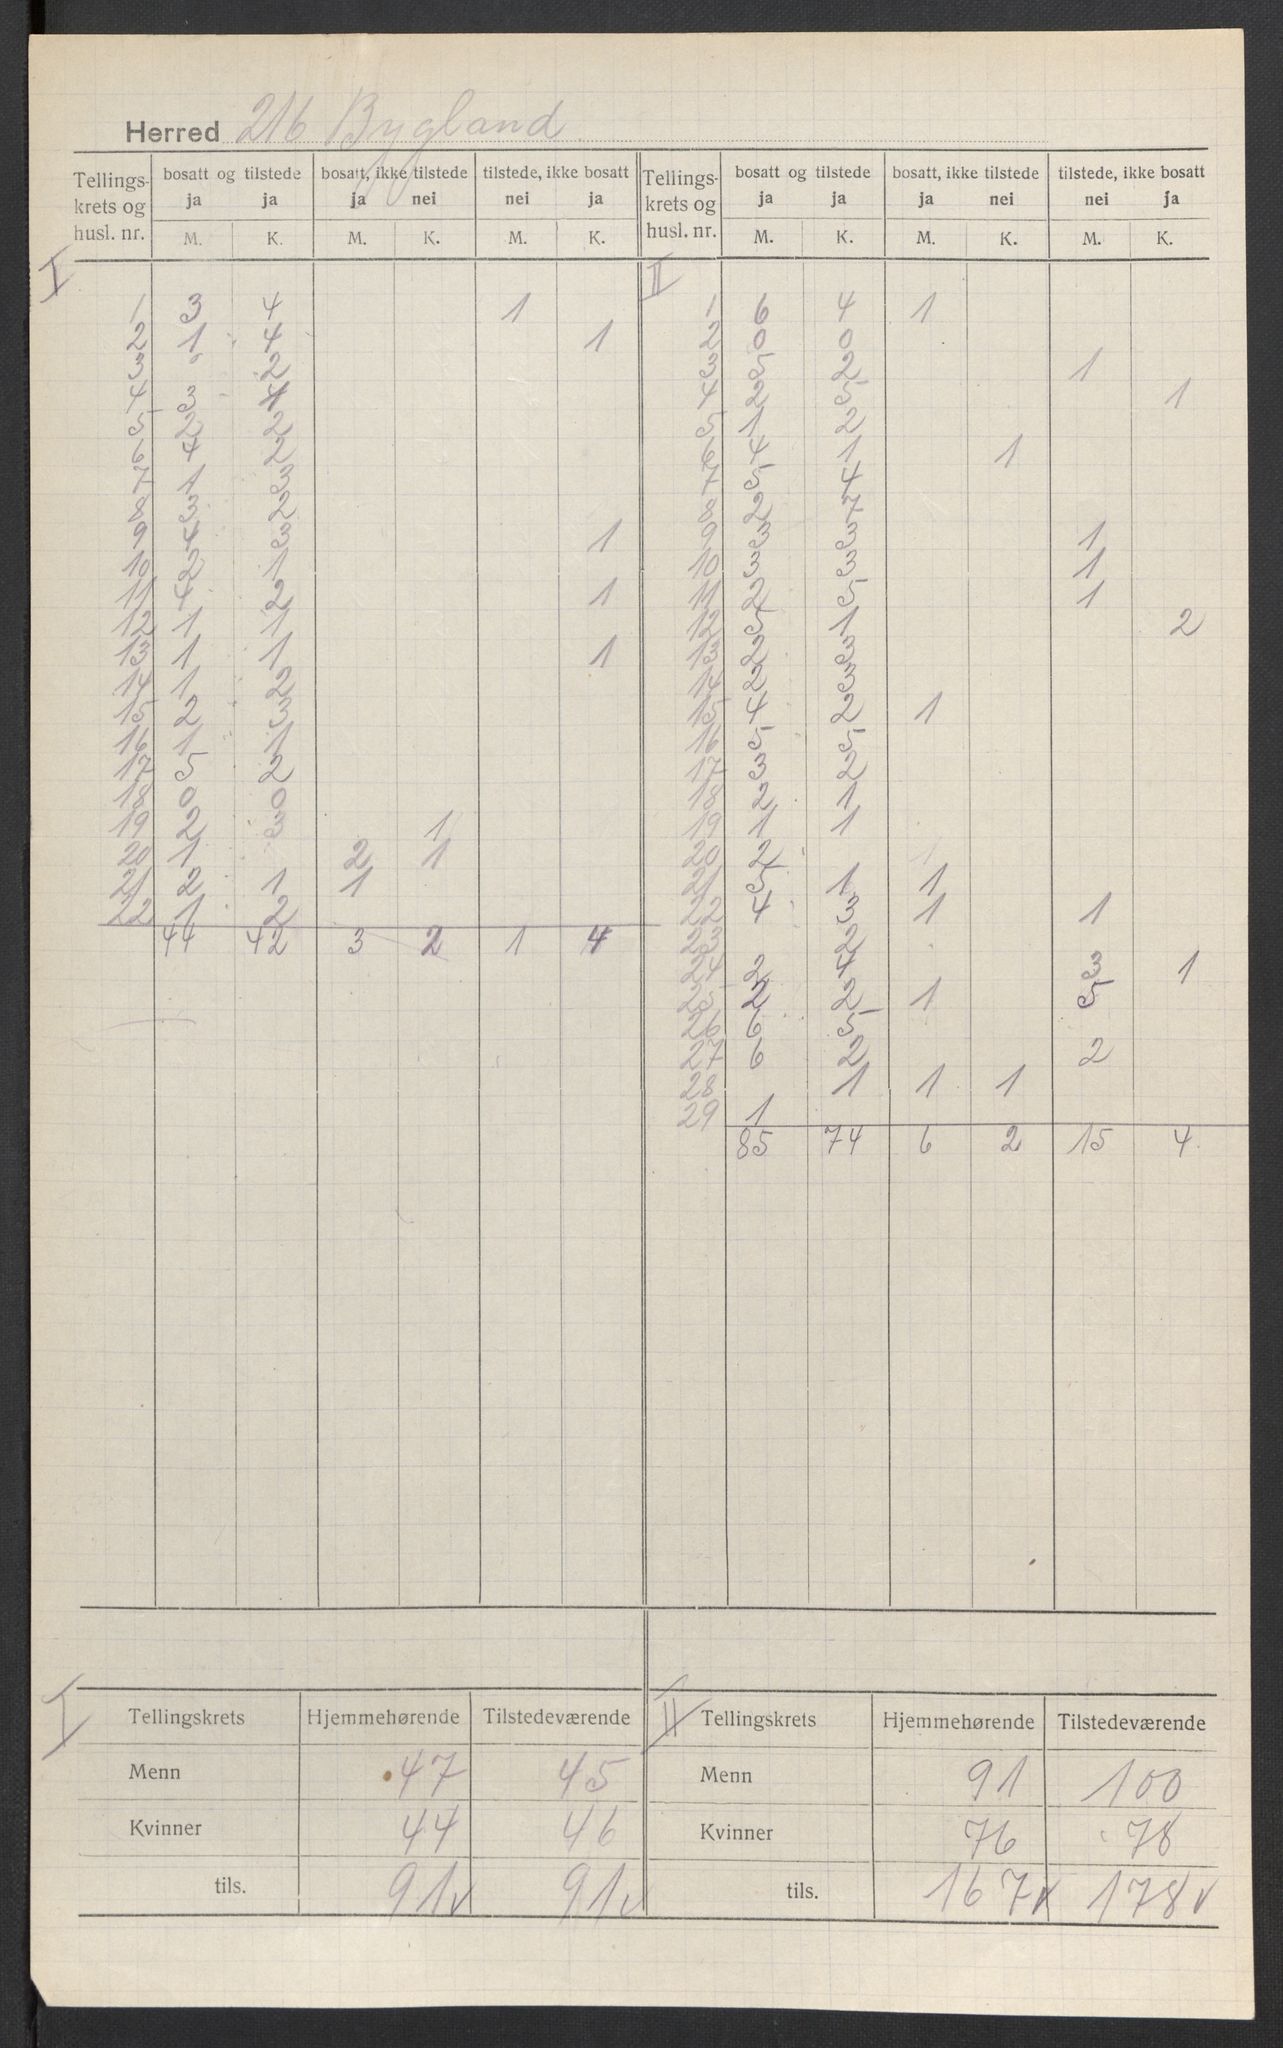 Herred 216 Bygland
Tellings-krets og husl. nr. | bosatt og tilstede ja ja | bosatt, ikke tilstede ja nei | tilstede, ikke bosatt nei ja | Tellings-krets og husl. nr. | bosatt og tilstede ja ja | bosatt, ikke tilstede ja nei | tilstede, ikke bosatt nei ja
M. K. M. K. M. K. M. K. M. K. M. K.
I
1 3 4 1
2 1 4 1
3 2
4 3 4
5 2 2
6 4 2
7 1 3
8 3 2
9 4 3 1
10 2 1
11 4 2 1
12 1 1
13 1 1 1
14 1 2
15 2 3
16 1 1
17 5 2
18 0 0
19 2 3 1
20 1 2 1
21 2 1 1
22 1 2
44 42 3 2 1 4
II
1 6 4 1
2 0 0
3 5 2 1
4 2 5 1
5 1 2
6 4 1 1
7 5 4
8 2 7
9 3 3 1
10 3 3 1
11 2 5 1
12 1 2
13 2 3
14 2 3
15 4 2 1
16 5 5
17 3 2
18 2 1
19 1 1
20 2
21 1 1
22 4 3 1 1
23 2
24 2 4 3 1
25 2 2 1 5
26 6 5
27 6 2 2
28 1 1 1
29 1
85 74 6 2 15 4
I
Tellingskrets Hjemmehørende Tilstedeværende
Menn 47 45
Kvinner 44 46
tils. 91 91
II
Tellingskrets Hjemmehørende Tilstedeværende
Menn 91 100
Kvinner 76 78
tils. 167 178